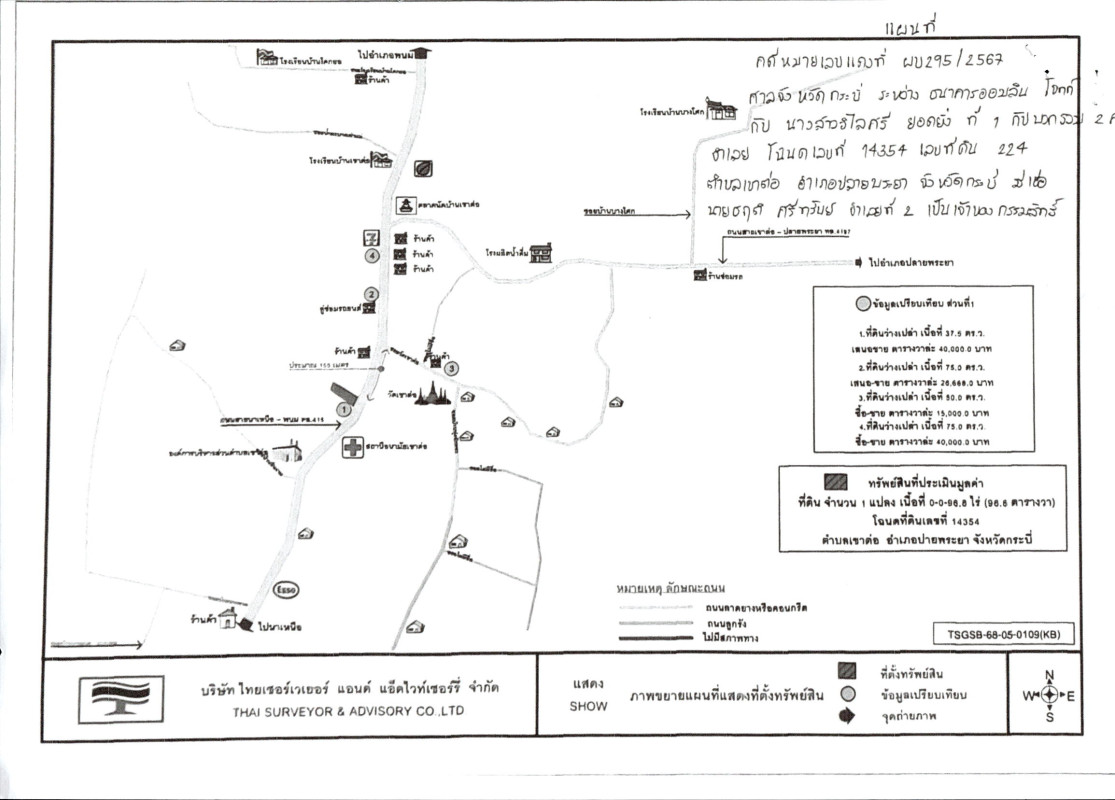 แผนที่
คดีหมายเลขแดงที่ ผบ295/2567
ศาลจังหวัดกระบี่ ระหว่าง ธนาคารออมสิน โจทก์
กับ ยอดยิ่ง ที่ 1 กับพวกรวม 2 ค
จำเลย โฉนดเลขที่ 14354 เลขที่ดิน 224
ตำบลเขาต่อ อำเภอปลายพระยา จังหวัดกระบี่ มีชื่อ
นาย ศรีทวีนย์ จำเลยที่ 2 เป็นเจ้าของกรรมสิทธิ์
โรงเรียนบ้านโคกยอ
ไปอำเภอพนม
ร้านค้า
โรงเรียนบ้านบางโคก
โรงเรียนบ้านเขาต่อ
ตลาดนัดบ้านเขาต่อ
ซอยบ้านบางโคก
ถนนสายเขาต่อ - ปลายพระยา ทล.4197
7
ร้านค้า
4
ร้านค้า
ร้านค้า
โรงผลิตน้ำดื่ม
ไปอำเภอปลายพระยา
ร้านซ่อมรถ
2
อู่ซ่อมรถยนต์
ร้านค้า
ร้านค้า
ประมาณ 155 เมตร
3
วัดเขาต่อ
1
ถนนสายนาเหนือ - พนม ทล.415
สถานีอนามัยเขาต่อ
องค์การบริหารส่วนตำบลเขาต่อ
Esso
ร้านค้า
ไปนาเหนือ
ข้อมูลเปรียบเทียบ ส่วนที่1
1.ที่ดินว่างเปล่า เนื้อที่ 37.5 ตร.ว.
เสนอขาย ตารางวาล่ะ 40,000.0 บาท
2.ที่ดินว่างเปล่า เนื้อที่ 75.0 ตร.ว.
เสนอ-ขาย ตารางวาล่ะ 26,666.0 บาท
3.ที่ดินว่างเปล่า เนื้อที่ 50.0 ตร.ว.
ซื้อ-ขาย ตารางวาล่ะ 15,000.0 บาท
4.ที่ดินว่างเปล่า เนื้อที่ 75.0 ตร.ว.
ซื้อ-ขาย ตารางวาล่ะ 40,000.0 บาท
ทรัพย์สินที่ประเมินมูลค่า
ที่ดิน จำนวน 1 แปลง เนื้อที่ 0-0-96.6 ไร่ (96.6 ตารางวา)
โฉนดที่ดินเลขที่ 14354
ตำบลเขาต่อ อำเภอปายพระยา จังหวัดกระบี่
หมายเหตุ ลักษณะถนน
ถนนลาดยางหรือคอนกรีต
ถนนลูกรัง
ไม่มีสภาพทาง
TSGSB-68-05-0109(KB)
บริษัท ไทยเซอร์เวเยอร์ แอนด์ แอ็ดไวท์เซอร์รี่ จำกัด
THAI SURVEYOR & ADVISORY CO.,LTD
แสดง
SHOW
ภาพขยายแผนที่แสดงที่ตั้งทรัพย์สิน
ที่ตั้งทรัพย์สิน
ข้อมูลเปรียบเทียบ
จุดถ่ายภาพ
N
W E
S